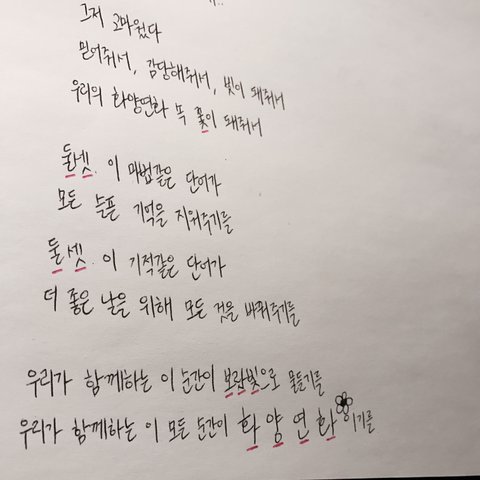 그저 고마웠다
믿어줘서, 감당해줘서, 빛이 돼줘서
우리의 화양연화 속 꽃이 돼줘서
둘셋. 이 마법같은 단어가
모든 슬픈 기억을 지워주기를
둘셋. 이 기적같은 단어가
더 좋은 날을 위해 모든 것을 바꿔주기를
우리가 함께하는 이 순간이 보랏빛으로 물들기를
우리가 함께하는 이 모든 순간이 화양연화이기를